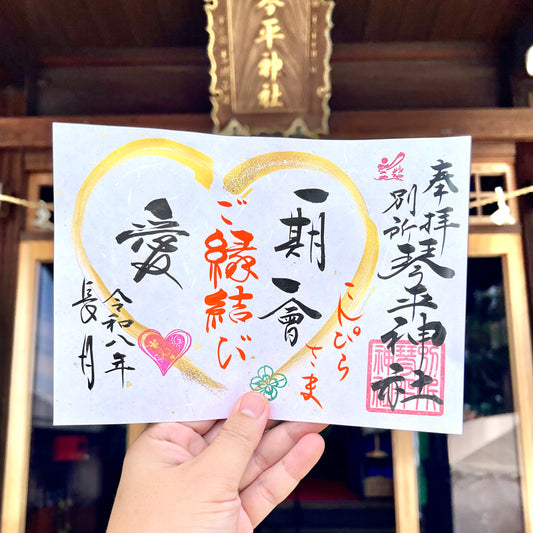 琴平神社
奉拝
別所琴平神社
こんぴら
さま
一期一會
ご縁結び
愛
令和八年
長月